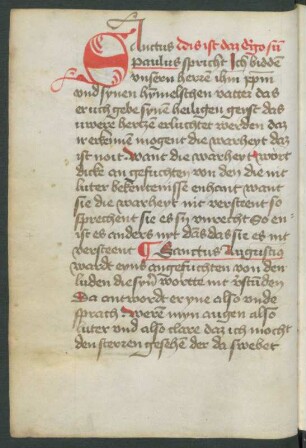 Sanctus
Paulus spricht Ich bidden
vnsern herren ihm xpm
vnd synen hymelschen vatter das
er uch gebe synen heiligen geyst das
uwere hertze erluchtet werden daz
ir erkennen mogent die warheyt daz
ist noit want die warheyt wort
dicke an gefuchten von den die nit
luter bekentenisse enhant want
sie die warheyt nit versteent so
sprechent sie es sy vnrecht So en
ist es anders nit das das sie es nit
versteent Sanctus Augustinus
wardt eyns angefuchten von den
luden die syn wortte nit
Da antwordt er yne also vnde
sprach weren myn augen also
luter vnd also clare daz ich mocht
den sterren gesehen der da swebet